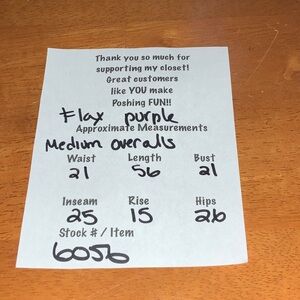 Thank you so much for
supporting my closet!
Great customers
like YOU make
Poshing FUN!!
Flax purple
Approximate Measurements
Medium overalls
Waist Length Bust
21 56 21
Inseam Rise Hips
25 15 26
Stock # / Item
6056